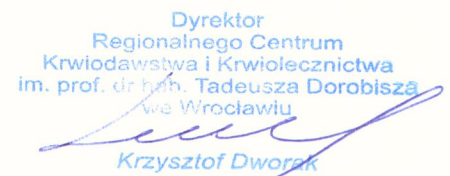 Dyrektor
Regionalnego Centrum
Krwiodawstwa i Krwiolecznictwa
im. prof. dr hab. Tadeusza Dorobisza
we Wrocławiu
Krzysztof Dworak